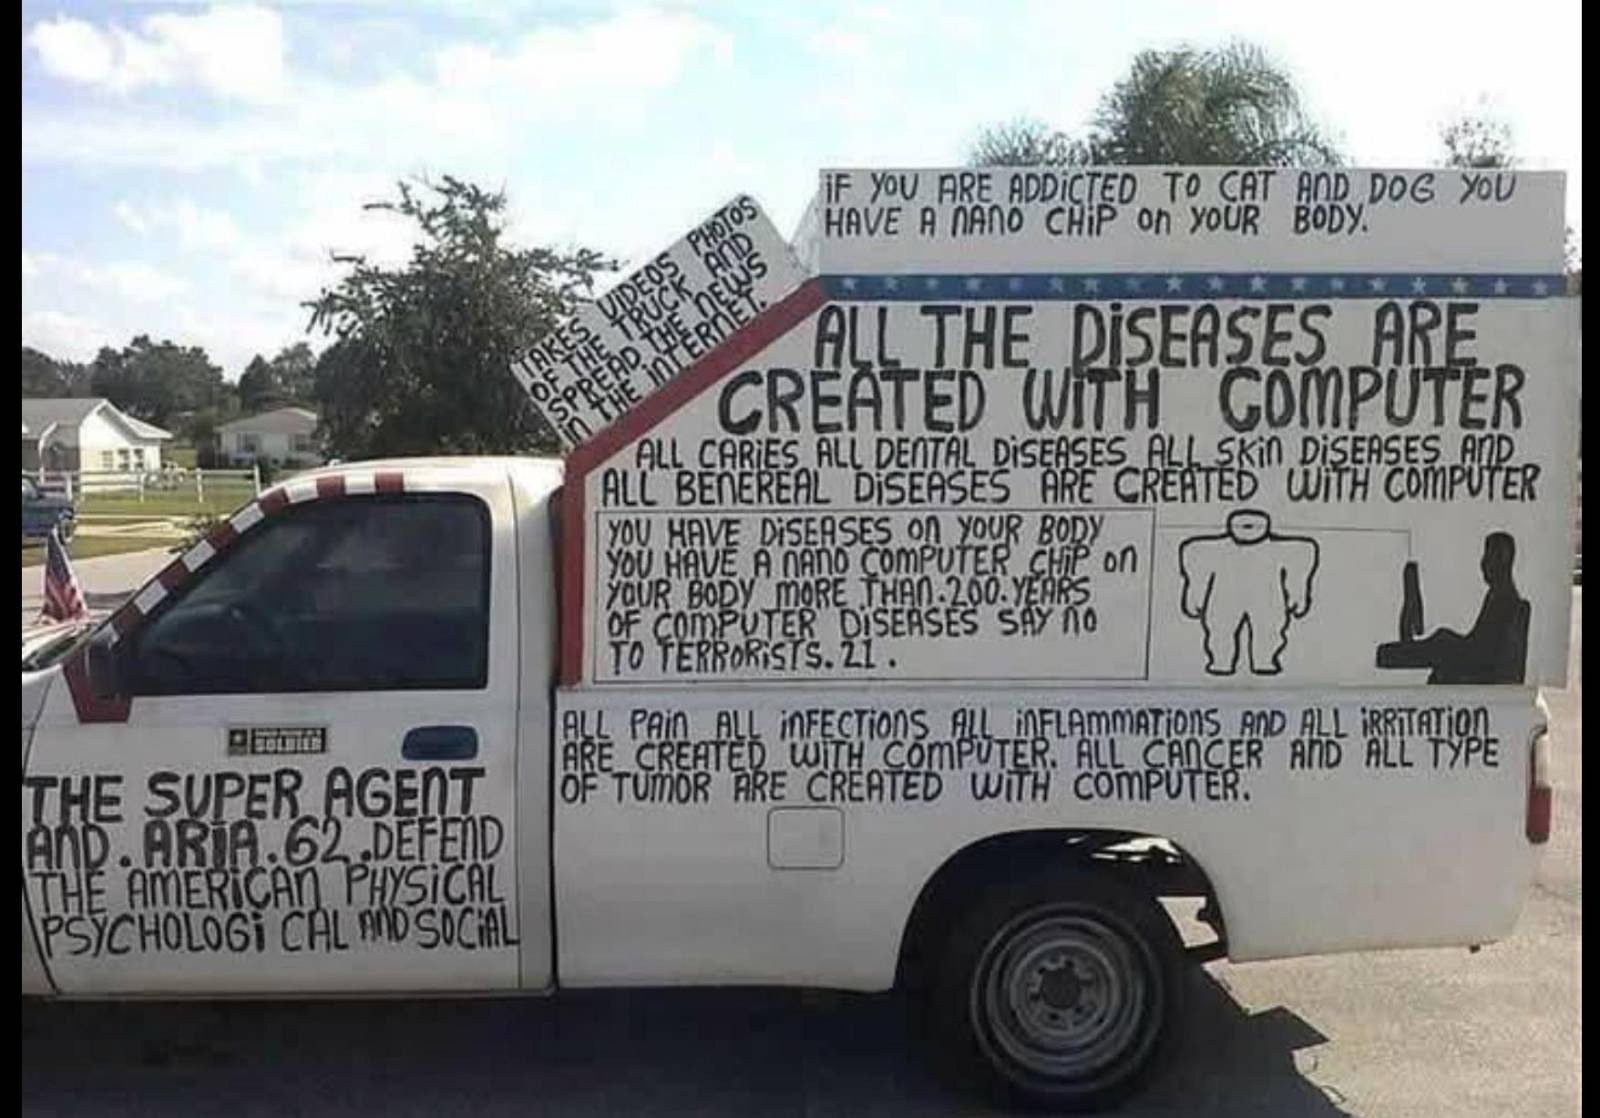 iF YOU ARE ADDiCTED TO CAT AND DOG YOU
HAVE A NANO CHiP ON YOUR BODY.
TAKES VIDEOS PHOTOS
OF THE TRUCK AND
SPREAD THE NEWS
IN THE INTERNET.
ALL THE DiSEASES ARE
CREATED WiTH COMPUTER
ALL CARiES ALL DENTAL DiSEASES ALL SKiN DiSEASES AND
ALL BENEREAL DiSEASES ARE CREATED WiTH COMPUTER
YOU HAVE DiSEASES ON YOUR BODY
YOU HAVE A NANO COMPUTER CHiP ON
YOUR BODY MORE THAN.200.YEARS
OF COMPUTER DiSEASES SAY NO
TO TERRORiSTS.21.
ALL PAiN ALL iNFECTiONS ALL iNFLAMMATiONS AND ALL iRRiTATiON
ARE CREATED WiTH COMPUTER. ALL CANCER AND ALL TYPE
OF TUMOR ARE CREATED WiTH COMPUTER.
SOLDIER
THE SUPER AGENT
AND.ARiA.62.DEFEND
THE AMERiCAN PHYSiCAL
PSYCHOLOGi CAL AND SOCiAL